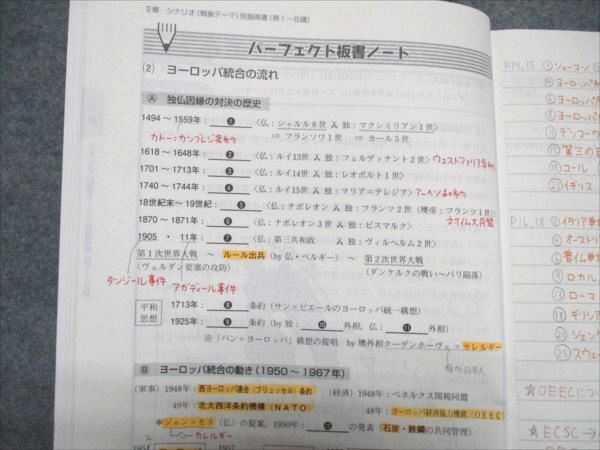 Ⅱ章 シナリオ(戦後テーマ)別指南書(第1〜8講)
パーフェクト板書ノート
(2) ヨーロッパ統合の流れ
Ⓐ 独仏因縁の対決の歴史
1494〜1559年:❶〈仏:シャルル8世 独:マクシミリアン1世〉
カトー=カンブレジ条約
⇨ フランソワ1世 ⇨ カール5世
1618〜1648年:❷〈仏:ルイ13世 独:フェルディナント2世〉ウェストファリア条約
1701〜1713年:❸〈仏:ルイ14世 独:レオポルト1世〉
1740〜1744年:❹〈仏:ルイ15世 独:マリア=テレジア〉アーヘン和約
18世紀末〜19世紀:❺〈仏:ナポレオン 独:フランツ2世(墺帝:フランツ1世)〉
1870〜1871年:❻〈仏:ナポレオン3世 独:ビスマルク〉
1905・11年:❼〈仏:第三共和政 独:ヴィルヘルム2世〉
第1次世界大戦 〜 ルール出兵(by仏・ベルギー)〜 第2次世界大戦
(ヴェルダン要塞の攻防) (ダンケルクの戦い〜パリ陥落)
タンジール事件 アガディール事件
平和思想
1713年:❽条約(サン=ピエールのヨーロッパ統一構想)
1925年:❾(by独:❿外相, 仏:⓫外相)
※「パン=ヨーロッパ」構想の提唱 by 墺外相クーデンホーヴ=カレルギー
母が日本人
Ⓑ ヨーロッパ統合の動き(1950〜1967年)
(軍事)1948年:西ヨーロッパ連合(ブリュッセル)条約 (経済)1948年:ベネルクス関税同盟
49年:北大西洋条約機構(NATO) 48年:ヨーロッパ経済協力機構(OEEC)
*ジャン=モネ(仏)の提案, 1950年:⓬の発表(石炭・鉄鋼の共同管理)
カレルギー
P.14,15
P.16,18
☆OEECに
☆ECSC→